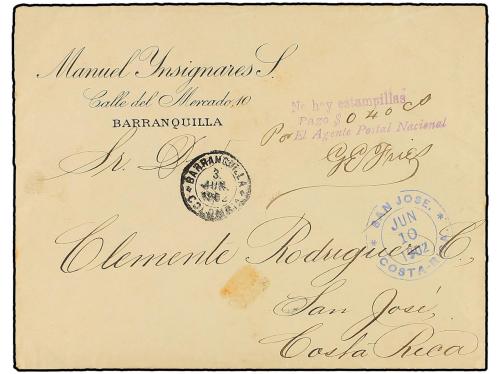 Manuel Ynsignares S.
Calle del Mercado, 10
BARRANQUILLA
No hay estampillas
Pagó $ 0 40 c
Por El Agente Postal Nacional
Sr. D.
BARRANQUILLA
3
JUN.
COLOMBIA
SAN JOSE.
JUN
10
1902
COSTA-RICA
Clemente Rodriguez C.
San José
Costa Rica